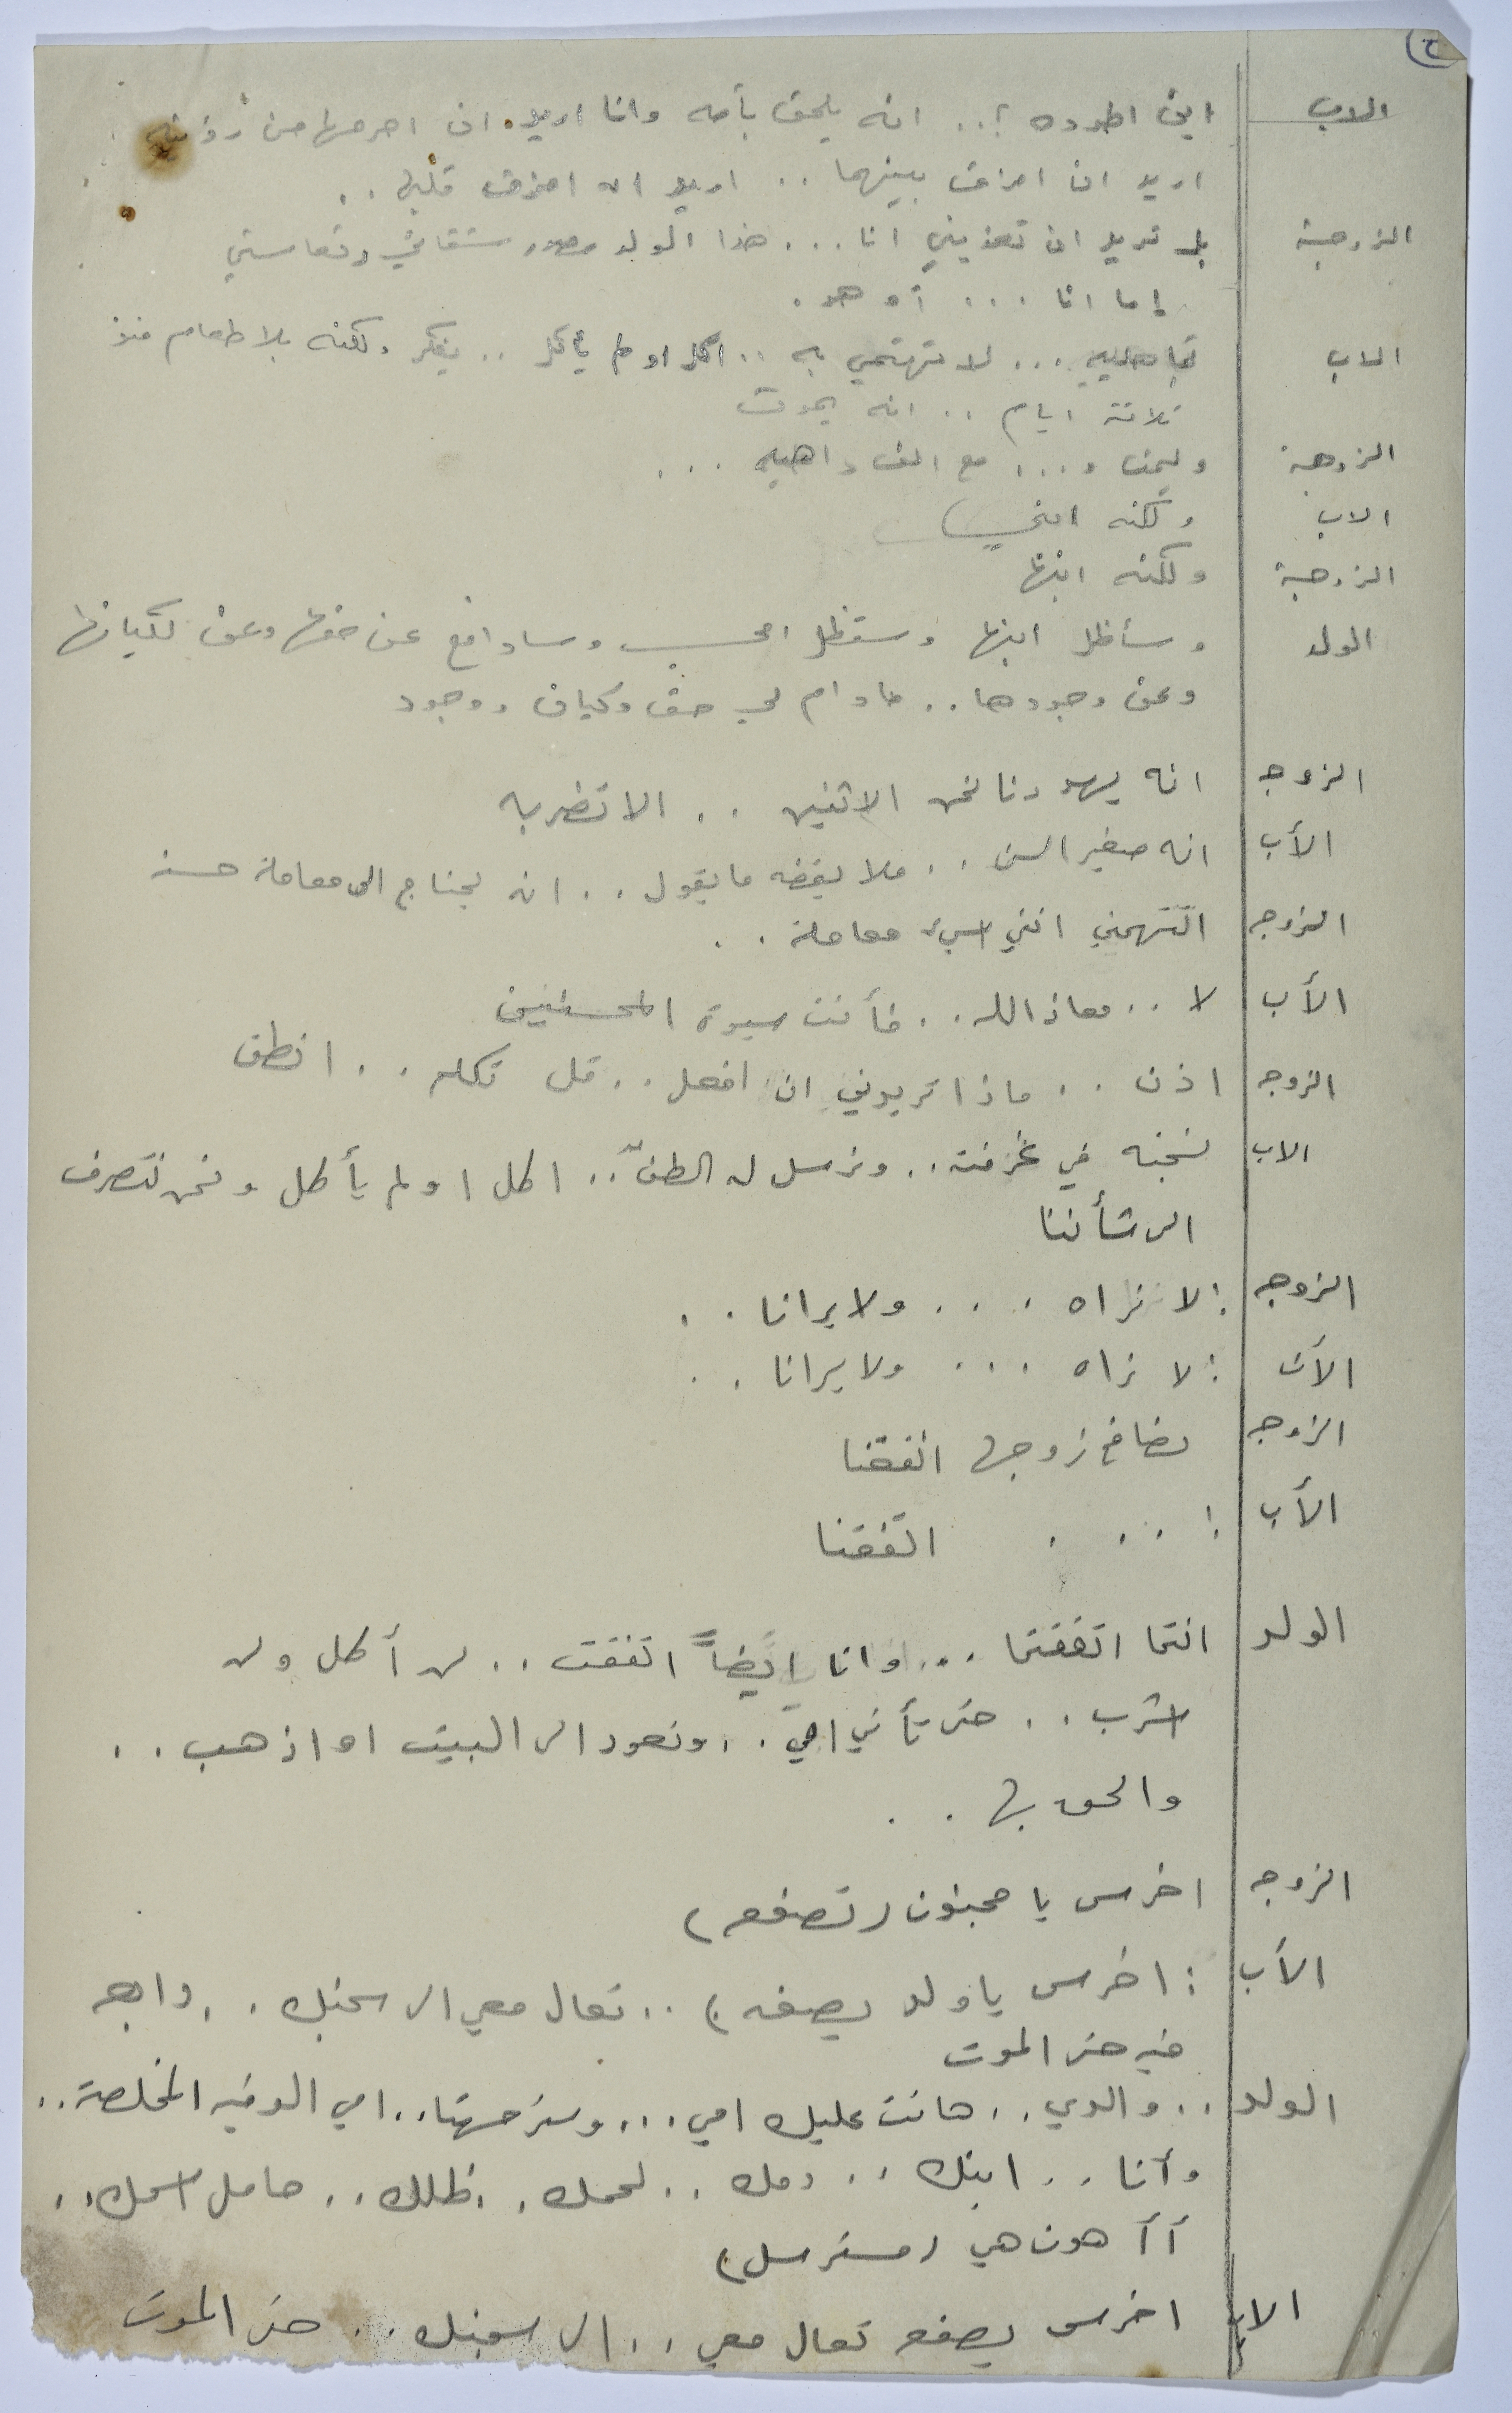 ح
الاب اين اطرده ؟.. انه يلحق بأمه وانا اريد ان احرمها من رؤيته
اريد ان افرق بينهما .. اريد ان امزق قلبها ..
الزوجة بل تريد ان تعذبني انا ... هذا الولد مصدر شقائي وتعاستي
إما انا ... أو هو .
الاب تجاهليه ... لا تهتمي به .. اكل او لم يأكل .. يفكر ولكنه بلا طعام منذ
ثلاثة ايام .. انه يموت
الزوجة وليمت و... مع الف داهيه ...
الاب ولكنه ابني
الزوجة ولكنه ابنها
الولد وسأظل ابنها وستظل امي وسادافع عن حقها وعن كيانها
وعن وجودها .. مادام لي حق وكيان ووجود
الزوجه انه يهددنا نحن الاثنين .. الا تضربه
الأب انه صغير السن .. فلا يفقه ما يقول .. انه يحتاج الى معاملة حسنه
الزوجه اتتهمني انني اسيء معاملة ..
الأب لا .. معاذ الله .. فأنت سيدة المحسنين
الزوجه اذن .. ماذا تريدني ان افعل .. قل تكلم .. انطق
الاب نسجنه في غرفته .. ونرسل له .. اكل او لم يأكل ونحن ننصرف
الى شأننا
الزوجه : لا نراه ... ولا يرانا ..
الأب : لا نراه ... ولا يرانا ..
الزوجه تصافح زوجها اتفقنا
الأب : ... اتفقنا
الولد انتما اتفقتما ... وانا ايضاً اتفقت .. لن أكل ولن
اشرب .. حتى تأتي امي .. ونعود الى البيت او اذهب ..
والحق بها ..
الزوجه اخرس يا مجنون ( تصفعه )
الأب : اخرس يا ولد يصفعه ) .. تعال معي الى سجنك ..
فيه حتى الموت
الولد .. والدي .. هانت عليك امي ... .. امي الوفيه المخلصة ..
وأنا .. ابنك .. دمك .. لحمك .. ظلك .. حامل اسمك ..
أأ هون هي ( مسترسل )
الاب اخرس يصفعه تعال معي .. الى سجنك .. حتى الموت